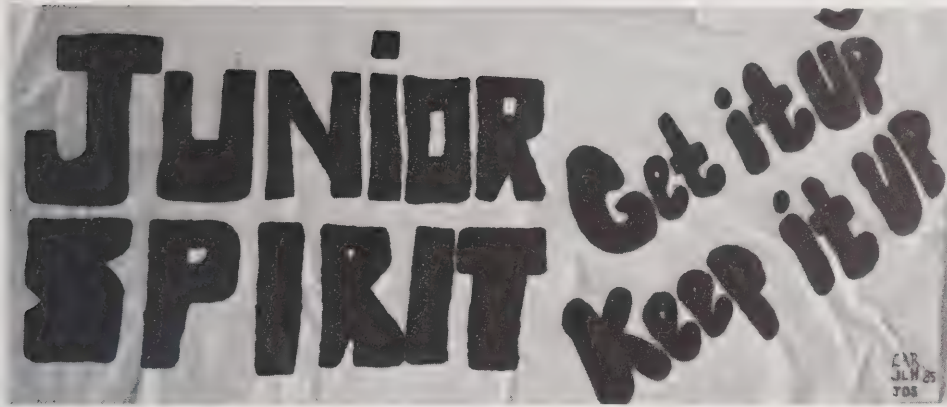 JUNiOR
SPIRIT
Get it UP
Keep it UP
JLM 85
JDS